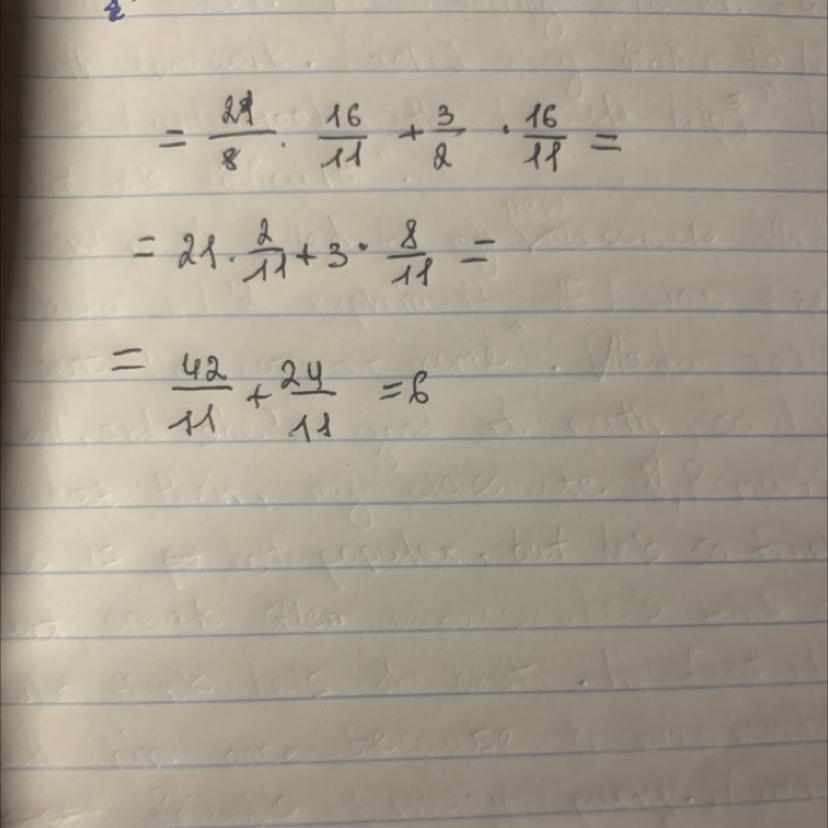 = 21/8 · 16/11 + 3/2 · 16/11 =
= 21 · 2/11 + 3 · 8/11 =
= 42/11 + 24/11 = 6